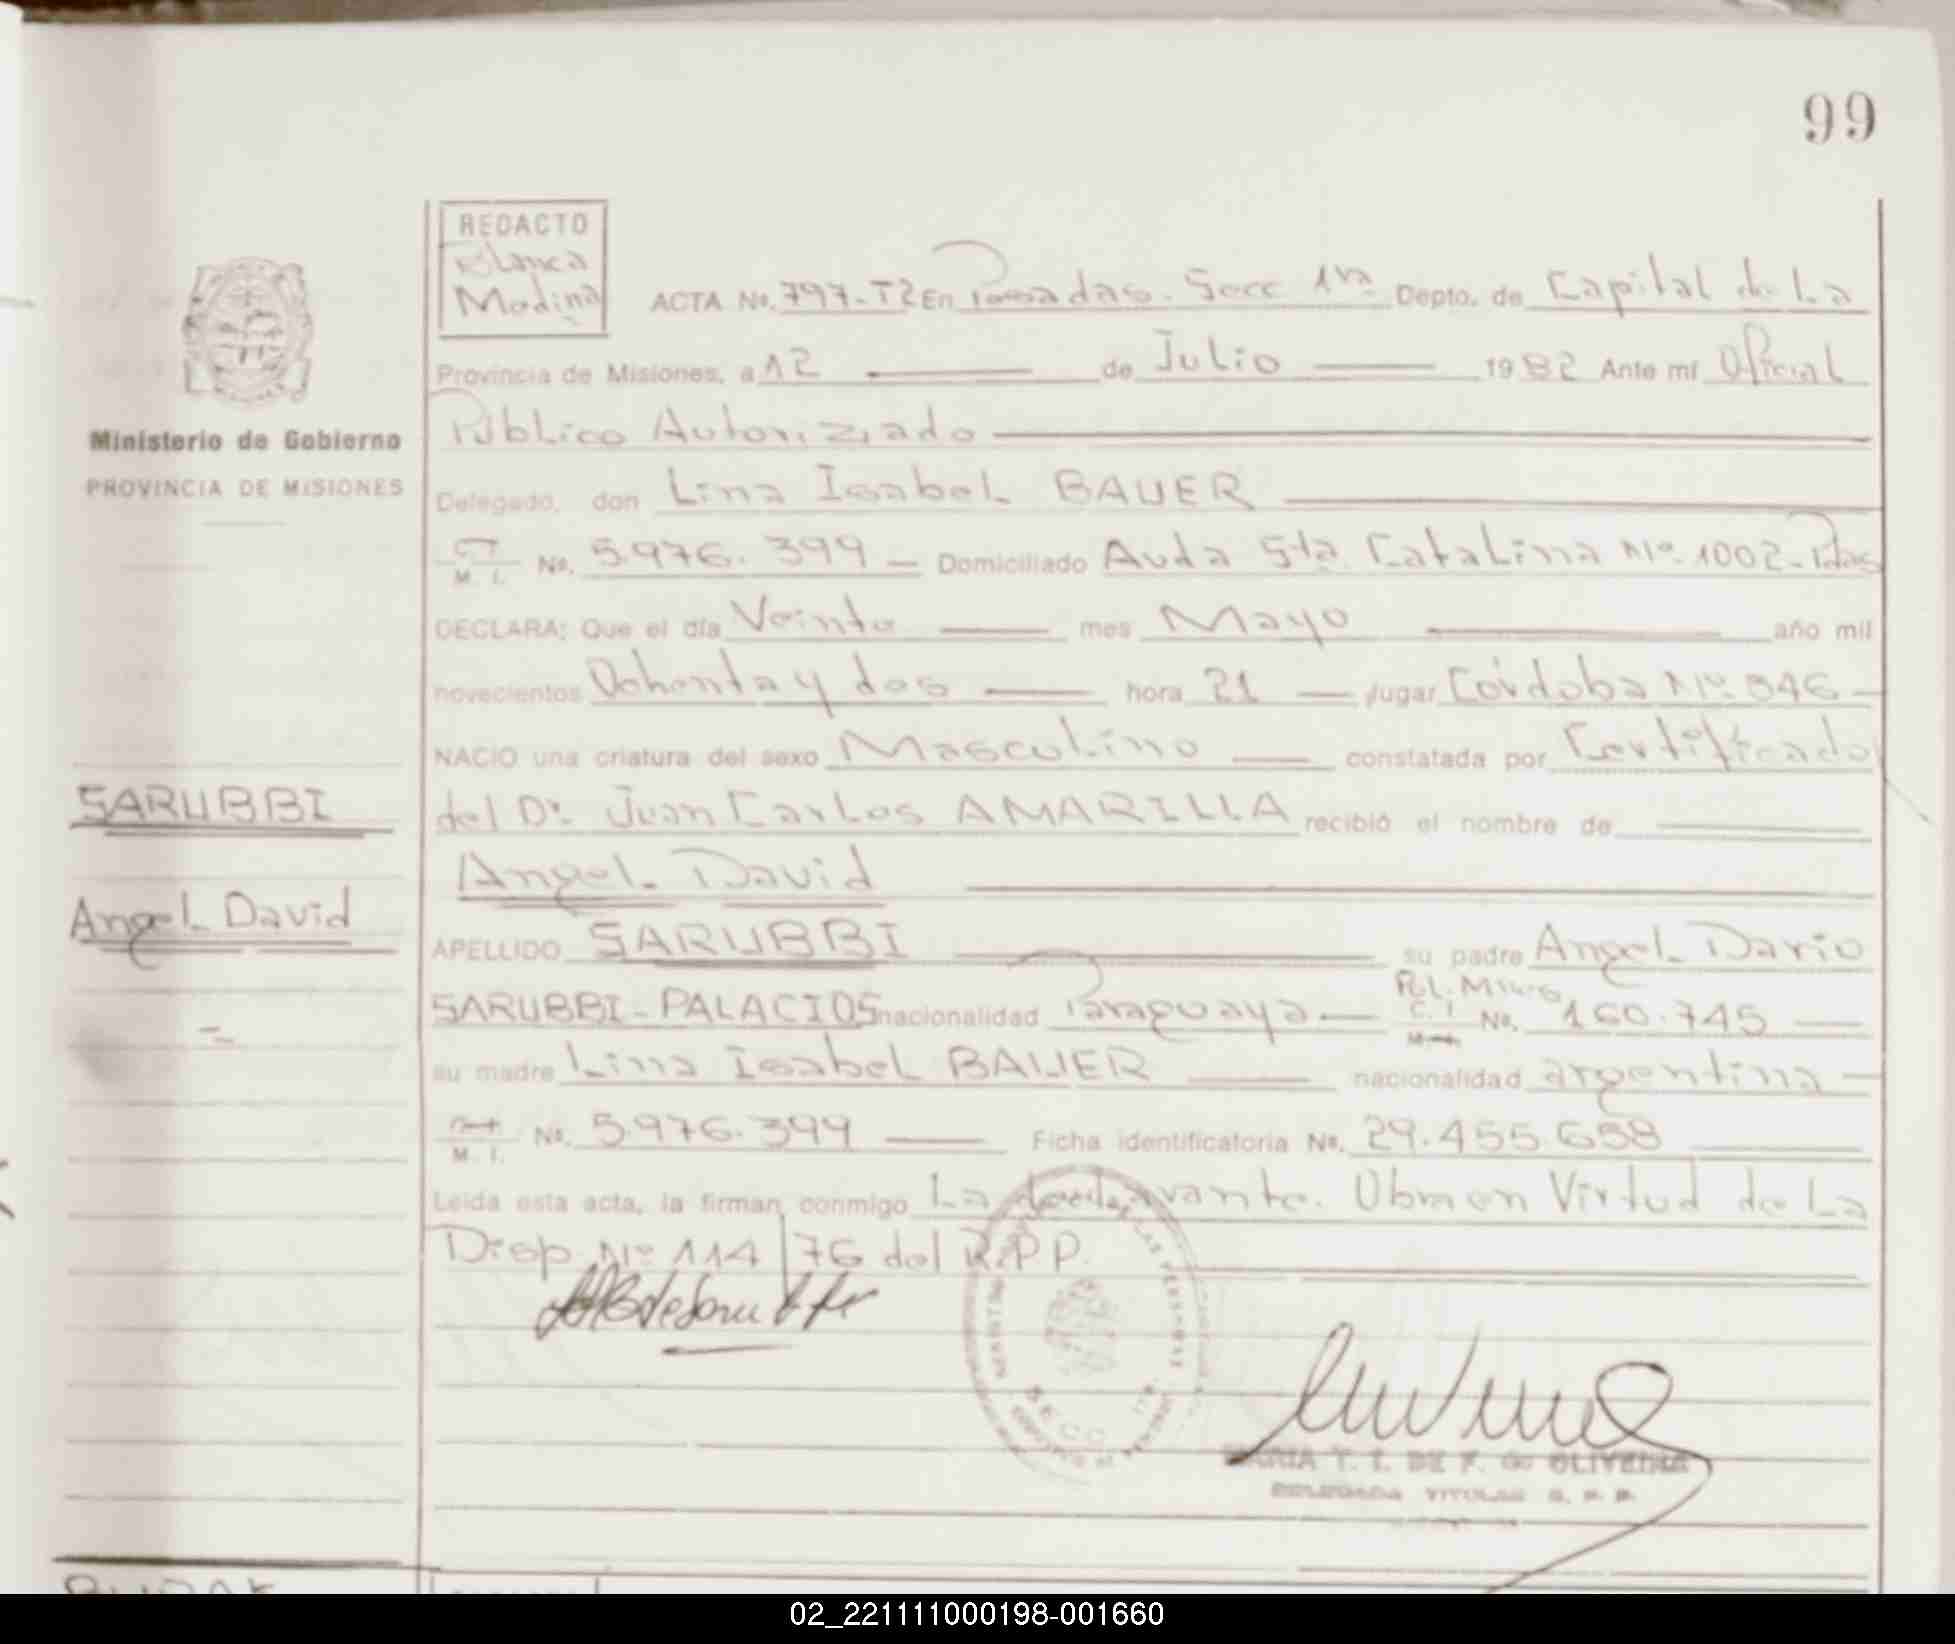 99
REDACTO
Blanca
Medina
ACTA No. 797-T2 En Posadas. Secc 1ra Depto. de Capital de La
Provincia de Misiones, a 12 de Julio 1982 Ante mí Oficial
Público Autorizado
Ministerio de Gobierno
PROVINCIA DE MISIONES
Delegado, don Lina Isabel BAUER
M. I. No. 5.976.399 Domiciliado Avda Sta. Catalina Nº 1002-Pdas
DECLARA: Que el día Veinte mes Mayo año mil
novecientos Ochenta y dos hora 21 lugar Córdoba Nº
NACIO una criatura del sexo Masculino constatada por Certificado
SARUBBI
del Dr. Juan Carlos AMARILLA recibió el nombre de
Angel David
Angel David
APELLIDO SARUBBI su padre Angel Dario
SARUBBI-PALACIOS nacionalidad Paraguaya Pol. C. I. No. 160.745
su madre Lina Isabel BAUER nacionalidad argentina
M. I. No. 5.976.399 Ficha identificatoria No. 29.455.658
Leida esta acta, la firman conmigo La declarante. Obra en Virtud de La
Disp. Nº 114/76 del R.P.P.
SECC.
MARIA T. I. DE F. DE OLIVEIRA
DELEGADA TITULAR R. P. P.
02_221111000198-001660